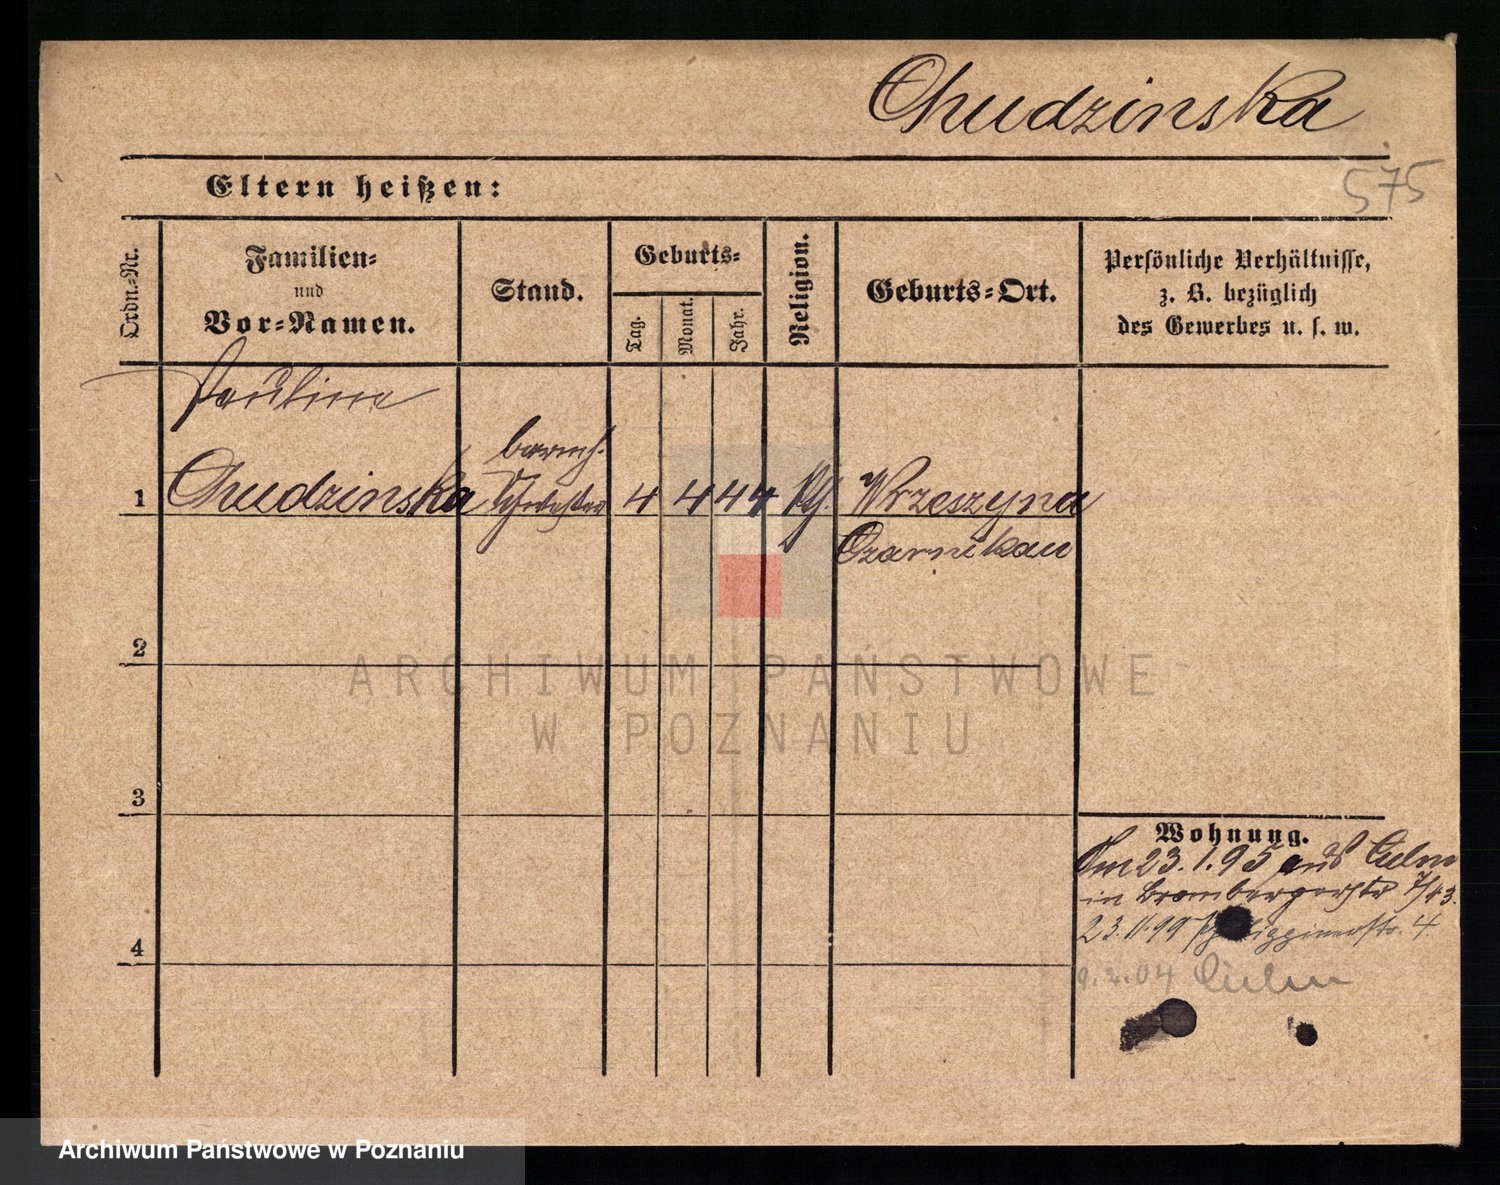 Chudzinska
575
Eltern heißen:
Ordn.-Nr.
Familien-
und
Vor-Namen.
Stand.
Geburts-
Tag.
Monat.
Jahr.
Religion.
Geburts-Ort.
Persönliche Verhältnisse,
z. B. bezüglich
des Gewerbes u. s. w.
Paulina
barmh.
1 Chudzinska Schwester 4 4 44 Wrzeszyna
Czarnikau
2
ARCHIWUM PAŃSTWOWE
W POZNANIU
3
Wohnung.
Am 23.1.95 aus Culm
in Brombergerstr 7/43.
23.11.99 4.
9.2.04 Culm
4
Archiwum Państwowe w Poznaniu